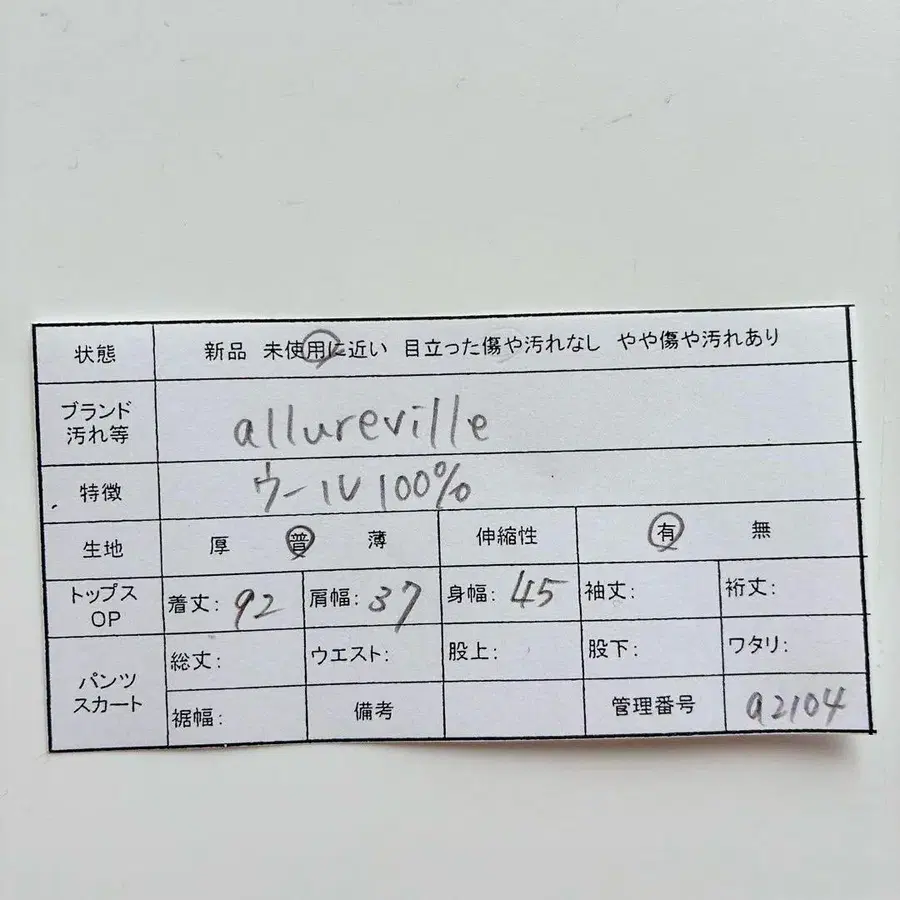 状態 新品 未使用に近い 目立った傷や汚れなし やや傷や汚れあり
ブランド
汚れ等 allureville
特徴 ウール100%
生地 厚 普 薄 伸縮性 有 無
トップス
OP 着丈: 92 肩幅: 37 身幅: 45 袖丈: 裄丈:
パンツ
スカート 総丈: ウエスト: 股上: 股下: ワタリ:
裾幅: 備考 管理番号 a2104